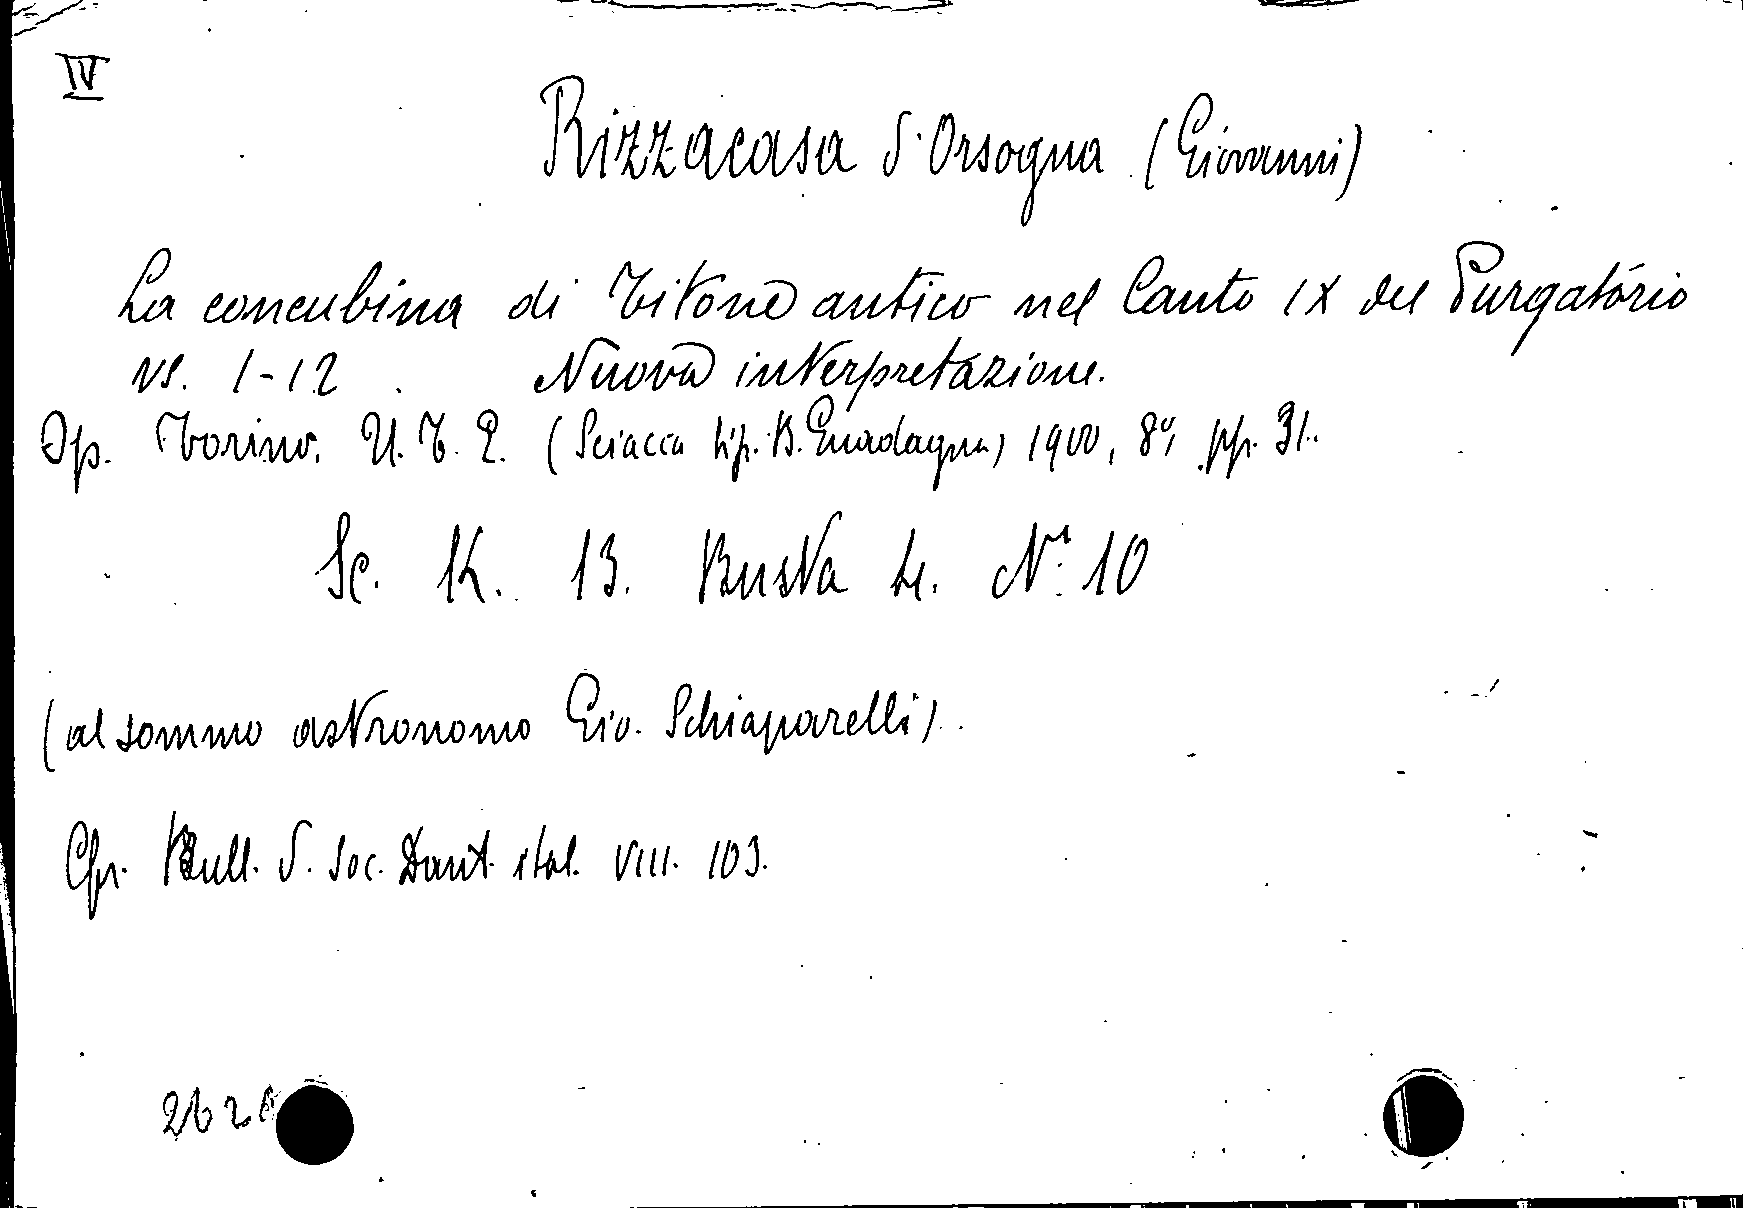 IV
Rizzacasa d'Orsogna (Giovanni)
La concubina di Titone antico nel Canto IX del Purgatorio
vs. 1-12. Nuova interpretazione.
Op. Torino. U. T. E. (Sciacca tip. B. Guadagna) 1900, 8°, pp. 31.
Sc. K. 13. Busta 4. N° 10
(al sommo astronomo Gio. Schiaparelli).
Cfr. Bull. d. Soc. Dant. ital. VIII. 103.